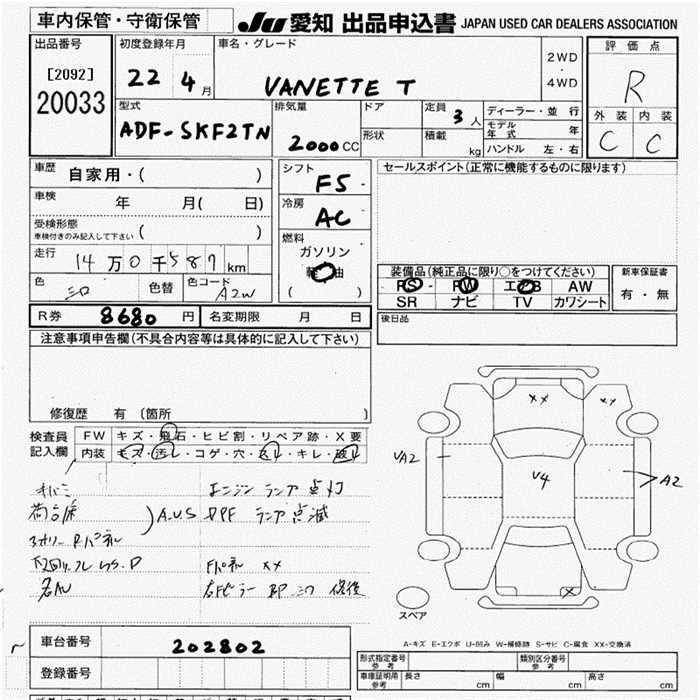 車内保管・守衛保管
JU 愛知 出品申込書 JAPAN USED CAR DEALERS ASSOCIATION
出品番号
[2092]
20033
初度登録年月
22 4月
車名・グレード
VANETTE T
2WD
・
4WD
評価点
R
外装 内装
C C
型式
ADF-SKF2TN
排気量
2000CC
ドア
形状
定員 3人
積載 kg
ディーラー・並行
モデル年式 年
ハンドル 左・右
車歴 自家用・( )
車検 年 月( 日)
受検形態
車検付きのみ記入して下さい ( )
走行 14万0千587km
色 色替 色コード A2W
シフト
F5
冷房
AC
燃料
ガソリン
軽油
( )
セールスポイント(正常に機能するものに限ります)
装備品(純正品に限り○をつけてください)
PS PW エアB AW
SR ナビ TV カワシート
新車保証書
有・無
R券 8680円 名変期限 月 日
後日品
注意事項申告欄(不具合内容等は具体的に記入して下さい)
修復歴 有 (箇所 )
検査員記入欄
FW キズ・飛石・ヒビ割・リペア跡・X要
内装 キズ・汚レ・コゲ・穴・スレ・キレ・破レ
エンジン ランプ 点灯
A.U.S DPF ランプ点滅
XX
XX
XX
UA2
U4
A2
X
スペア
A-キズ E-エクボ U-凹み W-補修跡 S-サビ C-腐食 XX-交換済
車台番号 202802
登録番号
形式指定番号 参考
類別区分番号 参考
車庫証明用 参考 長さ cm 幅 cm 高さ cm